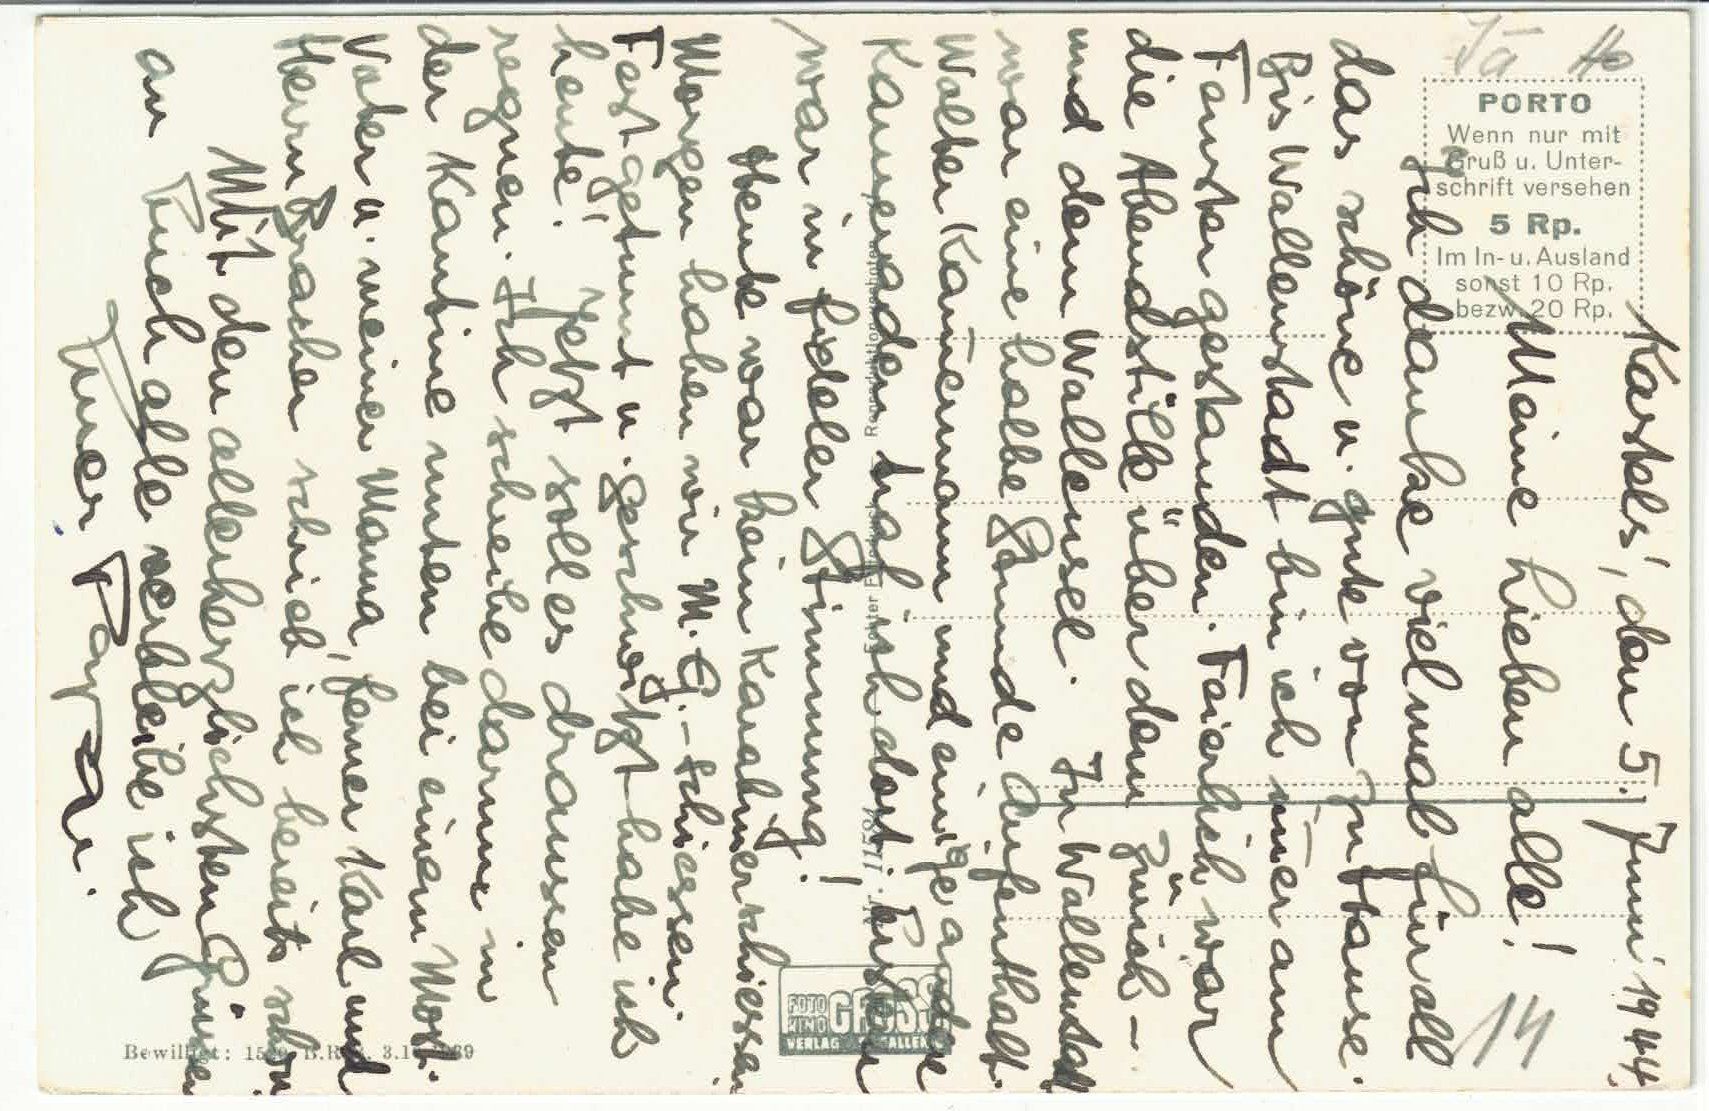 Kastels, den 5. Juni 1944.
Meine Lieben alle!
Ich danke vielmal für all
das schöne u. gute von zu Hause.
Bis Wallenstadt bin ich immer am
Fenster gestanden. Feierlich war
die Abendstille über dem Zürich-
und dem Wallensee. In Wallenstadt
war eine halbe Stunde Aufenthalt.
Walter Kammermann und einige andere
Kameraden traf ich dort. Der Papa
war in fideler Stimmung!
Heute war kein Karabinerschiessen.
Morgen haben wir M.G.-Schiessen.
Fest geturnt u. geschwitzt habe ich
heute! Jetzt soll es draussen
regnen. Ich schreibe darum in
der Kantine unten bei einem Most.
Vater u. meiner Mama, ferner Karl und
Herrn Bracher schrieb ich bereits schon.
Mit den allerherzlichsten Grüssen
an Euch alle verbleibe ich
Euer Papa.
14
PORTO
Wenn nur mit
Gruß u. Unter-
schrift versehen
5 Rp.
Im In- u. Ausland
sonst 10 Rp.
bezw. 20 Rp.
Nr. 11584
Reproduktion verboten
FOTO
KINO
GROSS
VERLAG ST. GALLEN
Bewilligt: B.R.B. 3.10.1939